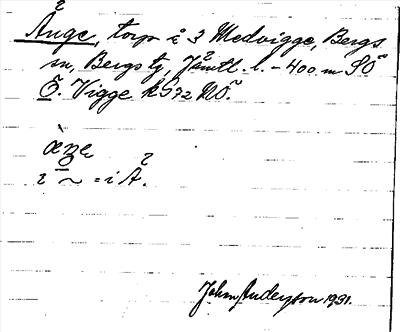 Ånge, torp i 3 Medvigge, Bergs
sn, Bergs tg, Jämtl. l. - 400 m SÖ
Ö. Vigge kG72 NÖ.
i ~ = i Å.
John Anderzson 1931.